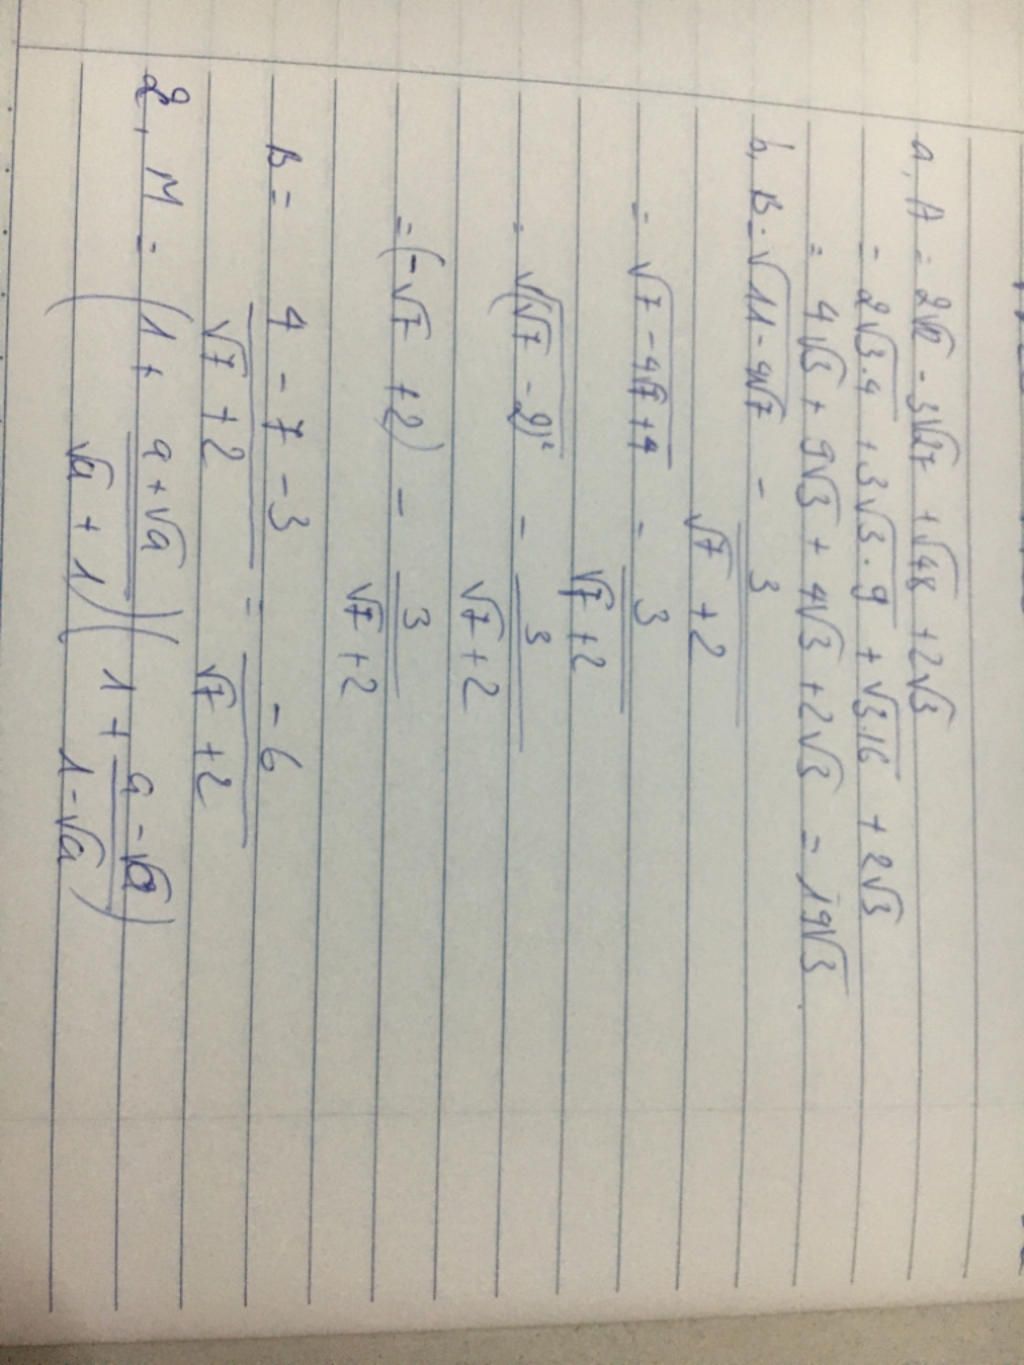 a, A = 2√12 - 3√27 + √48 + 2√3
= 2√3.4 + 3√3.9 + √3.16 + 2√3
= 4√3 + 9√3 + 4√3 + 2√3 = 19√3.
b, B = √11 - 4√7 - 3/√7 + 2
= √7 - 4√7 + 4 - 3/√7 + 2
= √(√7 - 2)² - 3/√7 + 2
= (-√7 + 2) - 3/√7 + 2
B = 4 - 7 - 3/√7 + 2 = -6/√7 + 2
2, M = (1 + a + √a/√a + 1)(1 + a - √a/1 - √a)